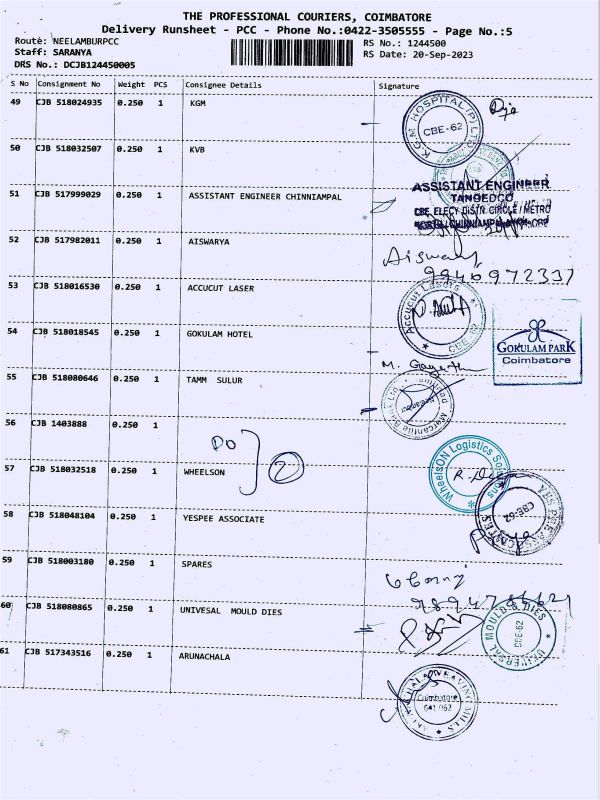 THE PROFESSIONAL COURIERS, COIMBATORE
Delivery Runsheet - PCC - Phone No.:0422-3505555 - Page No.:5
Route: NEELAMBURPCC
Staff: SARANYA
DRS No.: DCJB124450005
RS No.: 1244500
RS Date: 20-Sep-2023
S No Consignment No Weight PCS Consignee Details Signature
49 CJB 518024935 0.250 1 KGM
K.G.M HOSPITAL (P) LTD. CBE-62
50 CJB 518032507 0.250 1 KVB
51 CJB 517999029 0.250 1 ASSISTANT ENGINEER CHINNIAMPAL
ASSISTANT ENGINEER
TANGEDCO
CBE. ELECY DISTR. CIRCLE / METRO
52 CJB 517982011 0.250 1 AISWARYA
Aiswary
9946972337
53 CJB 518016530 0.250 1 ACCUCUT LASER
Accucut Lasers CBE 62
54 CJB 518018545 0.250 1 GOKULAM HOTEL
GOKULAM PARK
Coimbatore
55 CJB 518080646 0.250 1 TAMM SULUR
Mercantile
56 CJB 1403888 0.250 1
DO
2
57 CJB 518032518 0.250 1 WHEELSON
WheelsON Logistics Solutions
58 CJB 518048104 0.250 1 YESPEE ASSOCIATE
YESPEE ASSOCIATES CBE-62
59 CJB 518003180 0.250 1 SPARES
60 CJB 518080865 0.250 1 UNIVESAL MOULD DIES
UNIVERSAL MOULD & DIES CBE-62
61 CJB 517343516 0.250 1 ARUNACHALA
Coimbatore
641 062